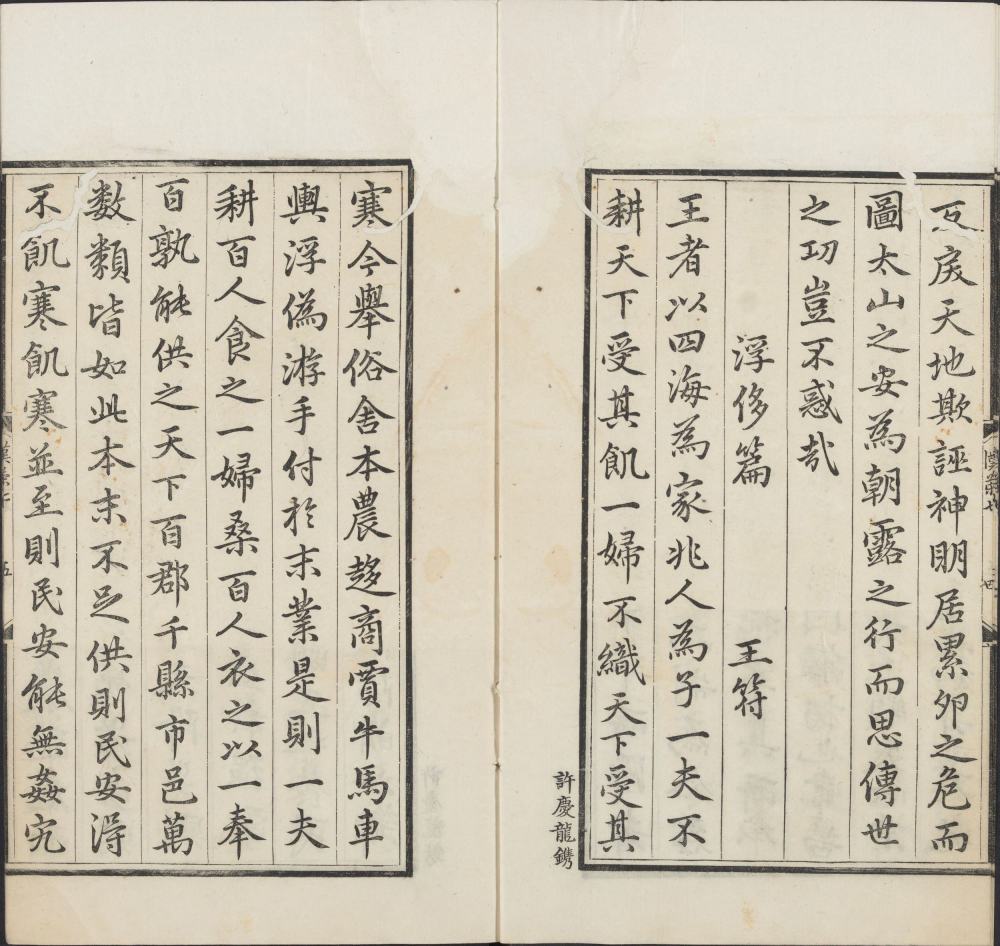 戾天地欺誣神明居累卵之危而
圖太山之安為朝露之行而思傳世
之功豈不惑哉
浮侈篇 王符
王者以四海為家兆人為子一夫不
耕天下受其飢一婦不織天下受其
許慶龍鐫
寒今舉俗舍本農趍商賈牛馬車
輿浮偽游手付於末業是則一夫
耕百人食之一婦桑百人衣之以一奉
百孰能供之天下百郡千縣市邑萬
数類皆如此本末不足供則民安得
不飢寒飢寒並至則民安能無姦宄
五